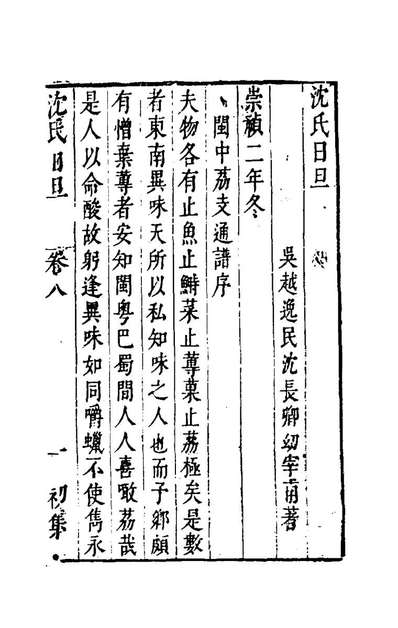 沈氏日旦
吳越逸民沈長卿幼宰甫著
崇禎二年冬
閩中荔支通譜序
夫物各有止魚止鰣菜止蓴菓止荔極矣是數
者東南異味天所以私知味之人也而子鄉頗
有憎棄蓴者安知閩粵巴蜀間人人喜啖荔哉
是人以命酸故躬逢異味如同嚼蠟不使雋永
沈氏日旦 卷八 一 初集